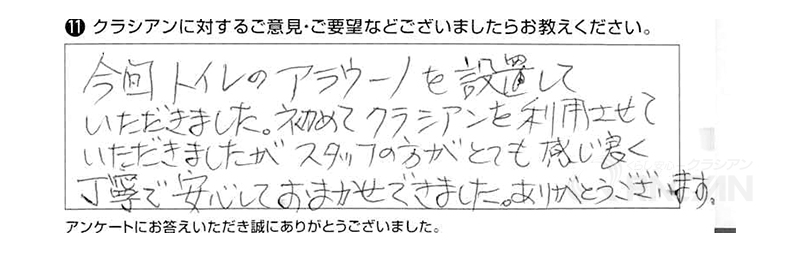 ⑪ クラシアンに対するご意見・ご要望などございましたらお教えください。
今回トイレのアラウーノを設置して
いただきました。初めてクラシアンを利用させて
いただきましたが スタッフの方がとても感じ良く
丁寧で安心しておまかせできました。ありがとうございます。
アンケートにお答えいただき誠にありがとうございました。
クラシアン